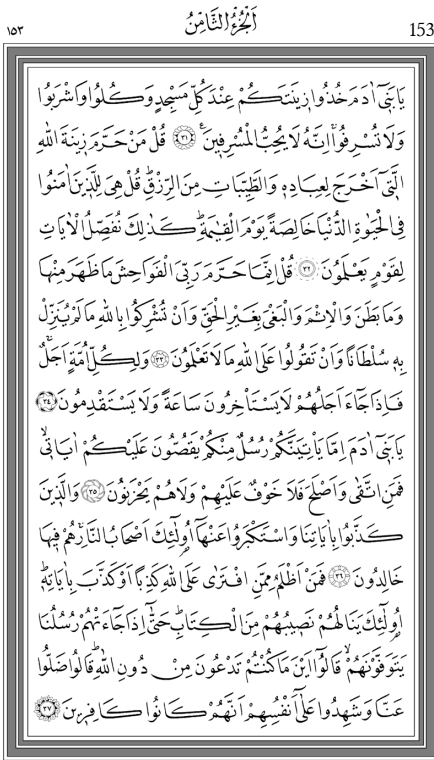 ١٥٣ اَلْجُزْءُ الثَّامِنُ 153
يَا بَنٖٓي اٰدَمَ خُذُوا زٖينَتَكُمْ عِنْدَ كُلِّ مَسْجِدٍ وَكُلُوا وَاشْرَبُوا
وَلَا تُسْرِفُواۚ اِنَّهُ لَا يُحِبُّ الْمُسْرِفٖينَࣖ ﴿٣١﴾ قُلْ مَنْ حَرَّمَ زٖينَةَ اللّٰهِ
الَّتٖٓي اَخْرَجَ لِعِبَادِهٖ وَالطَّيِّبَاتِ مِنَ الرِّزْقِؕ قُلْ هِيَ لِلَّذٖينَ اٰمَنُوا
فِي الْحَيٰوةِ الدُّنْيَا خَالِصَةً يَوْمَ الْقِيٰمَةِؕ كَذٰلِكَ نُفَصِّلُ الْاٰيَاتِ
لِقَوْمٍ يَعْلَمُونَ ﴿٣٢﴾ قُلْ اِنَّمَا حَرَّمَ رَبِّيَ الْفَوَاحِشَ مَا ظَهَرَ مِنْهَا
وَمَا بَطَنَ وَالْاِثْمَ وَالْبَغْيَ بِغَيْرِ الْحَقِّ وَاَنْ تُشْرِكُوا بِاللّٰهِ مَا لَمْ يُنَزِّلْ
بِهٖ سُلْطَانًا وَاَنْ تَقُولُوا عَلَى اللّٰهِ مَا لَا تَعْلَمُونَ ﴿٣٣﴾ وَلِكُلِّ اُمَّةٍ اَجَلٌۚ
فَاِذَا جَٓاءَ اَجَلُهُمْ لَا يَسْتَأْخِرُونَ سَاعَةً وَلَا يَسْتَقْدِمُونَ ﴿٣٤﴾
يَا بَنٖٓي اٰدَمَ اِمَّا يَأْتِيَنَّكُمْ رُسُلٌ مِنْكُمْ يَقُصُّونَ عَلَيْكُمْ اٰيَاتٖيۙ
فَمَنِ اتَّقٰى وَاَصْلَحَ فَلَا خَوْفٌ عَلَيْهِمْ وَلَا هُمْ يَحْزَنُونَ ﴿٣٥﴾ وَالَّذٖينَ
كَذَّبُوا بِاٰيَاتِنَا وَاسْتَكْبَرُوا عَنْهَٓا اُو۬لٰٓئِكَ اَصْحَابُ النَّارِۚ هُمْ فٖيهَا
خَالِدُونَ ﴿٣٦﴾ فَمَنْ اَظْلَمُ مِمَّنِ افْتَرٰى عَلَى اللّٰهِ كَذِبًا اَوْ كَذَّبَ بِاٰيَاتِهٖؕ
اُو۬لٰٓئِكَ يَنَالُهُمْ نَصٖيبُهُمْ مِنَ الْكِتَابِؕ حَتّٰٓى اِذَا جَٓاءَتْهُمْ رُسُلُنَا
يَتَوَفَّوْنَهُمْۙ قَالُٓوا اَيْنَ مَا كُنْتُمْ تَدْعُونَ مِنْ دُونِ اللّٰهِؕ قَالُوا ضَلُّوا
عَنَّا وَشَهِدُوا عَلٰٓى اَنْفُسِهِمْ اَنَّهُمْ كَانُوا كَافِرٖينَ ﴿٣٧﴾